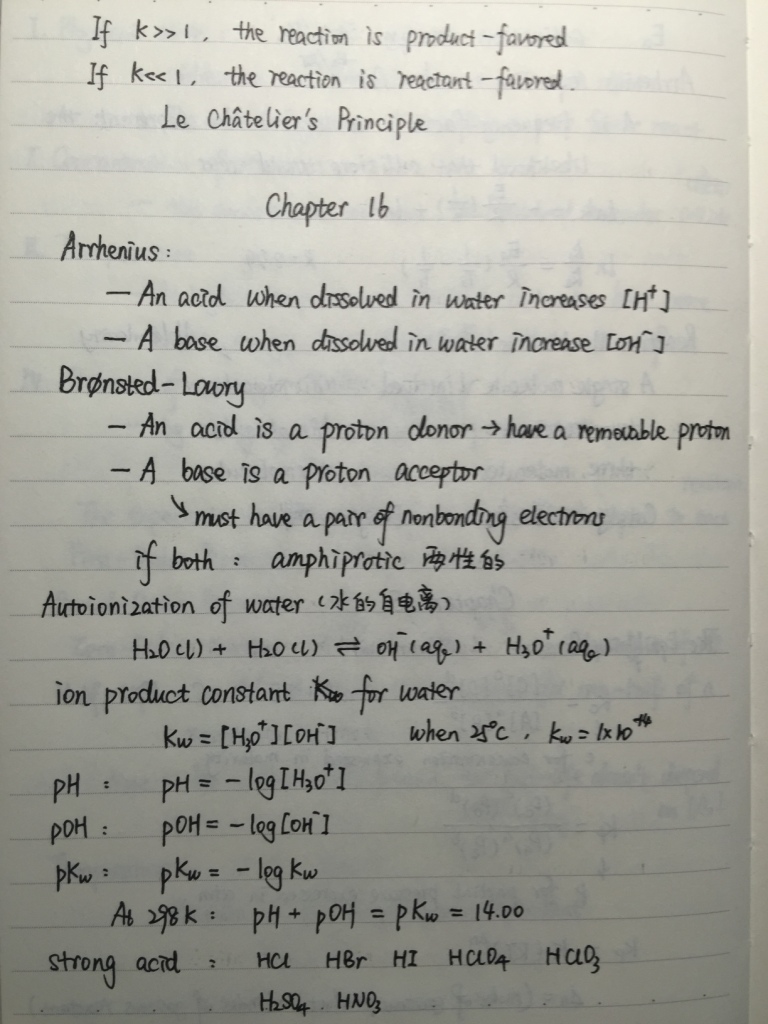 If K>>1, the reaction is product-favored
If K<<1, the reaction is reactant-favored.
Le Châtelier's Principle
Chapter 16
Arrhenius:
— An acid when dissolved in water increases [H⁺]
— A base when dissolved in water increase [OH⁻]
Brønsted-Lowry
— An acid is a proton donor → have a removable proton
— A base is a proton acceptor
↘ must have a pair of nonbonding electrons
if both : amphiprotic 两性的
Autoionization of water (水的自电离)
H₂O(l) + H₂O(l) ⇌ OH⁻(aq) + H₃O⁺(aq)
ion product constant Kw for water
Kw = [H₃O⁺][OH⁻] when 25°C, Kw = 1×10⁻¹⁴
pH : pH = -log[H₃O⁺]
pOH : pOH = -log[OH⁻]
pKw : pKw = -log Kw
At 298K : pH + pOH = pKw = 14.00
strong acid : HCl HBr HI HClO₄ HClO₃
H₂SO₄ HNO₃